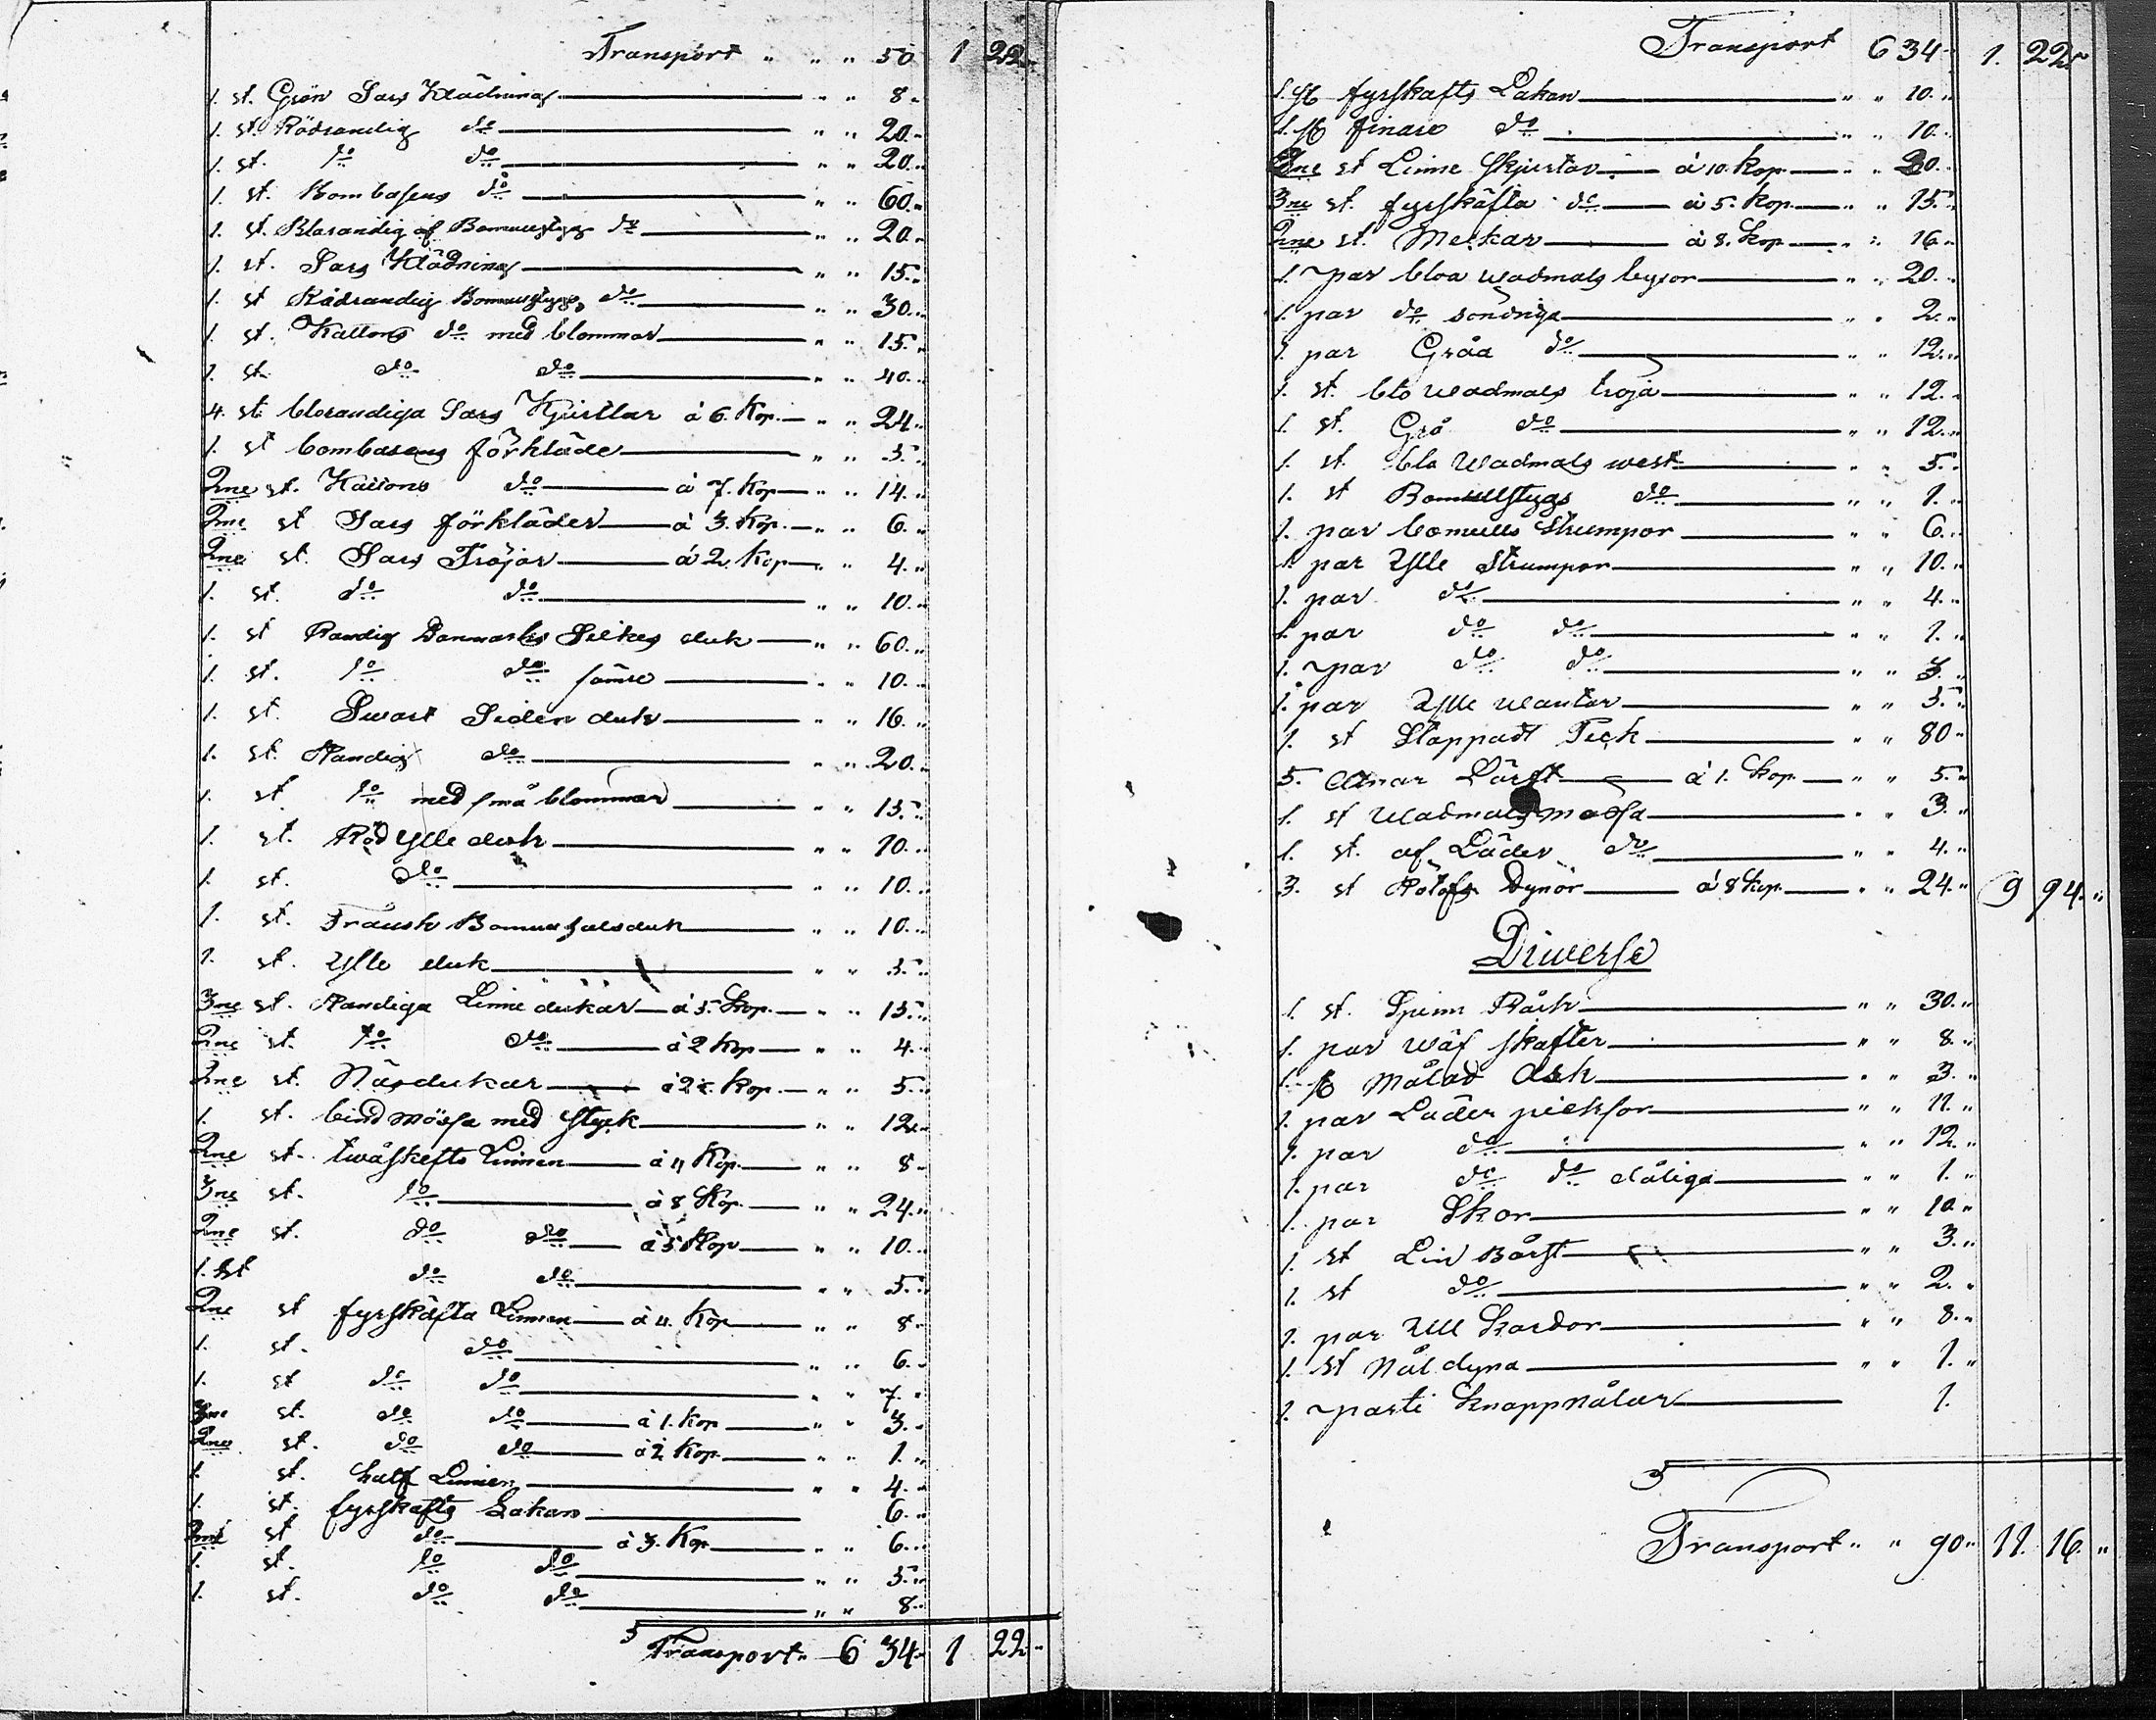 Transport " " " 50 1 22 "
1. st. Grön Sars Klädning " " 8 "
1. st. Rödrandig do " " 20 "
1. st. do do " " 20 "
1. st. Bombasens do " " 60 "
1. st. Blarandig af Bomullstyg do " " 20 "
1. st. Sars Klädning " " 15 "
1. st Rödrandig Bomullstygs do " " 30 "
1. st. Kattons do med blommor " " 15 "
1. st. do do " " 40 "
4. st. blorandiga Sars Kjortlar à 6. Kop. " " 24 "
1. st bombasens förkläde " " 5 "
2ne st. Kattons do à 7. Kop " " 14 "
2ne st Sars förkläder à 3. Kop. " " 6 "
2ne st. Sars Tröjor à 2. Kop " " 4 "
1. st. do do " " 10 "
1. st Randig Danmarks Silkes duk " " 60 "
1. st. do do sämre " " 10 "
1. st. Swart Siden duk " " 16 "
1. st. Randig do " " 20 "
1. st do med små blommor " " 15 "
1. st. Röd ylle duk " " 10 "
1. st. do " " 10 "
1. st. Fransk Bomuls halsduk " " 10 "
1. st. Ylle duk " " 5 "
3ne st. Randiga Linne dukar à 5. Kop. " " 15 "
2ne st. do do à 2 Kop " " 4 "
2ne st. Näsdukar à 2½ Kop. " " 5 "
1. st. bindmössa med Styck " " 12 "
2ne st. twåskefts Linnen à 4 Kop. " " 8 "
3ne st. do à 8 Kop. " " 24 "
2ne st. do do à 5 Kop " " 10 "
1. st do do " " 5 "
2ne st fyrskäfta Linnen à 4. Kop " " 8 "
1. st. do " " 6 "
1. st do do " " 7 "
3ne st. do do à 1. Kop " " 3 "
2ne st. do do à ½ Kop. " " 1 "
1. st. half Linnen " " 4 "
1. st. fyrskafts Lakan 6 "
2ne st do à 3. Kop " " 6 "
1. st. do do " " 5 "
1. st. do do " " 8 "
Transport " 6 34 " 1 22 "
Transport 6 34 " 1. 22 "
1. st fyrskafts Lakan " " 10 "
1. st finare do " " 10 "
3ne st Linne Skjortor à 10. Kop " " 30 "
3ne st. fyrskäfta do à 5. Kop. " " 15 "
2ne st. Merkar à 8. Kop " " 16 "
1. par bloa wadmals byxor " " 20 "
1. par do söndriga " " 2 "
1. par Gråa do " " 12 "
1. st. blo wadmals troja " " 12 "
1. st. Grå do " " 12 "
1. st. blo Wadmals west " " 5 "
1. st Bomullstygs do " " 1 "
1. par bomulls Strumpor " " 6 "
1. par Ylle Strumpor " " 10 "
1. par do " " 4 "
1. par do do " " 1 "
1. par do do " " 3 "
1. par Ylle wantar " " 5 "
1. st Stoppadt Teck " " 80 "
5. Alnar Lärft à 1. Kop. " " 5 "
1. st Wadmals mössa " " 3 "
1. st. af Läder do " " 4 "
3. st Rölofs Dynor à 8 Kop. " " 24 " 9 94 "
Diwerse
1. st. Spinn Råck " " 30 "
1. par wäf skafter " " 8 "
1. st Målad Ask " " 3 "
1. par Läder pieksor " " 11 "
1. par do " " 12 "
1. par do do dåliga " " 1 "
1. par Skor " " 10 "
1. st Lin Bårst " " 3 "
1. st do " " 2 "
1. par Ull Kardor " " 8 "
1. st Nål dyna " " 1 "
1. parti Knappnålar 1.
Transport " " 90 " 11. 16. "